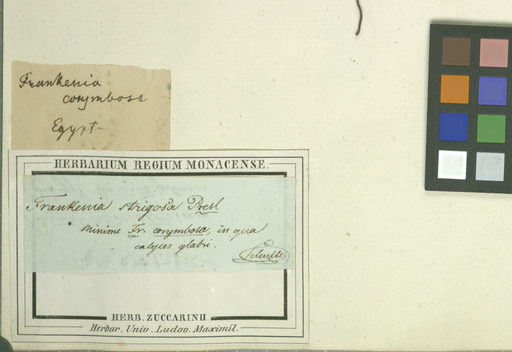 Frankenia
corymbosa
Egypt.
HERBARIUM REGIUM MONACENSE.
Frankenia strigosa Presl
minime Fr. corymbosa, in qua
calyces glabri.
HERB. ZUCCARINII.
Herbar. Univ. Ludov. Maximil.